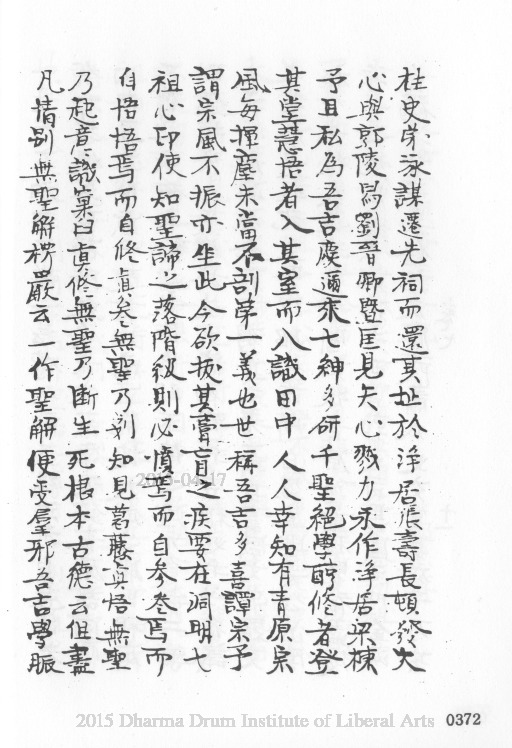 柱史弟泳謀遷先祠而還其址於淨居張壽長頓發大
心與郭陵舄劉晉卿暨匡見夫心戮力永作淨居梁棟
予且私為吾吉慶邇來七紳多研千聖絕學酷修者登
其堂慧悟者入其室而八識田中人人幸知有青原宗
風每揮麈未嘗不剖第一義也世稱吾吉多喜譚宗予
謂宗風不振亦坐此今欲拔其膏肓之疾要在洞明七
祖心印使知聖諦之落階級則必憤焉而自參參焉而
自悟悟焉而自修真參無聖乃剗知見葛藤真悟無聖
乃起意識窠臼真修無聖乃斷生死根本古德云但盡
凡情別無聖解楞嚴云一作聖解便受羣邪吾吉學脈
2015 Dharma Drum Institute of Liberal Arts 0372